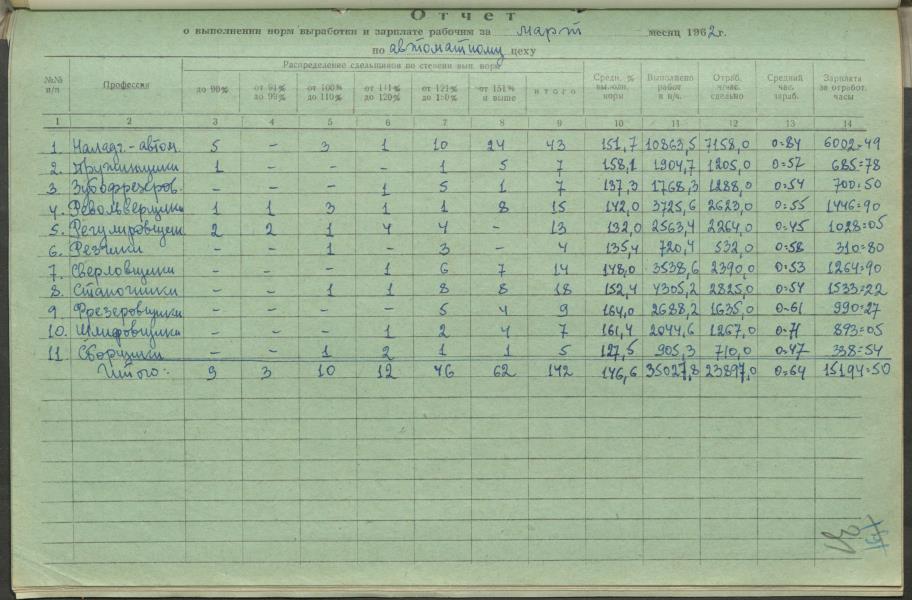 Отчет
о выполнении норм выработки и зарплате рабочим за март месяц 1962г.
по автоматному цеху
№№ п/п Профессия Распределение сдельщиков по степени вып. норм Средн. % вып. норм Выполнено работ в н/ч. Отраб. ч/час. сдельно Средний час. зараб. Зарплата за отработ. часы
до 90% от 91% до 99% от 100% до 110% от 111% до 120% от 121% до 150% от 151% и выше итого
1 2 3 4 5 6 7 8 9 10 11 12 13 14
1. Наладч.-автом. 5 - 3 1 10 24 43 151,7 10863,5 7158,0 0=84 6002=49
2. Пружинщики 1 - - - 1 5 7 158,1 1904,7 1205,0 0=57 685=78
3. Зубофрезеров. - - - 1 5 1 7 137,3 1768,3 1288,0 0=54 700=50
4. Револьверщики 1 1 3 1 1 8 15 142,0 3725,6 2623,0 0=55 1446=90
5. Регулировщики 2 2 1 4 4 - 13 132,0 2563,4 2264,0 0=45 1028=05
6. Резчики - - 1 - 3 - 4 135,4 720,4 532,0 0=58 310=80
7. Сверловщики - - - 1 6 7 14 148,0 3538,6 2390,0 0=53 1264=90
8. Станочники - - 1 1 8 8 18 152,4 4305,2 2825,0 0=54 1533=22
9. Фрезеровщики - - - - 5 4 9 164,0 2688,2 1635,0 0=61 990=27
10. Шлифовщики - - - 1 2 4 7 161,4 2044,6 1267,0 0=71 893=05
11 Сборщики - - 1 2 1 1 5 127,5 905,3 710,0 0=47 338=54
Итого: 9 3 10 12 46 62 142 146,6 35027,8 23897,0 0=64 15194=50